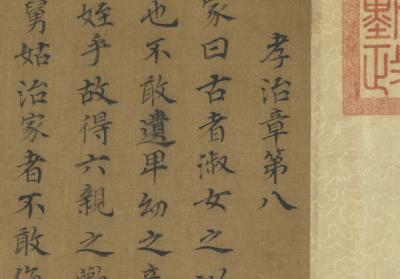 孝治章第八
家曰古者淑女之以
也不敢遺卑幼之妾
姪乎故得六親之歡
舅姑治家者不敢侮